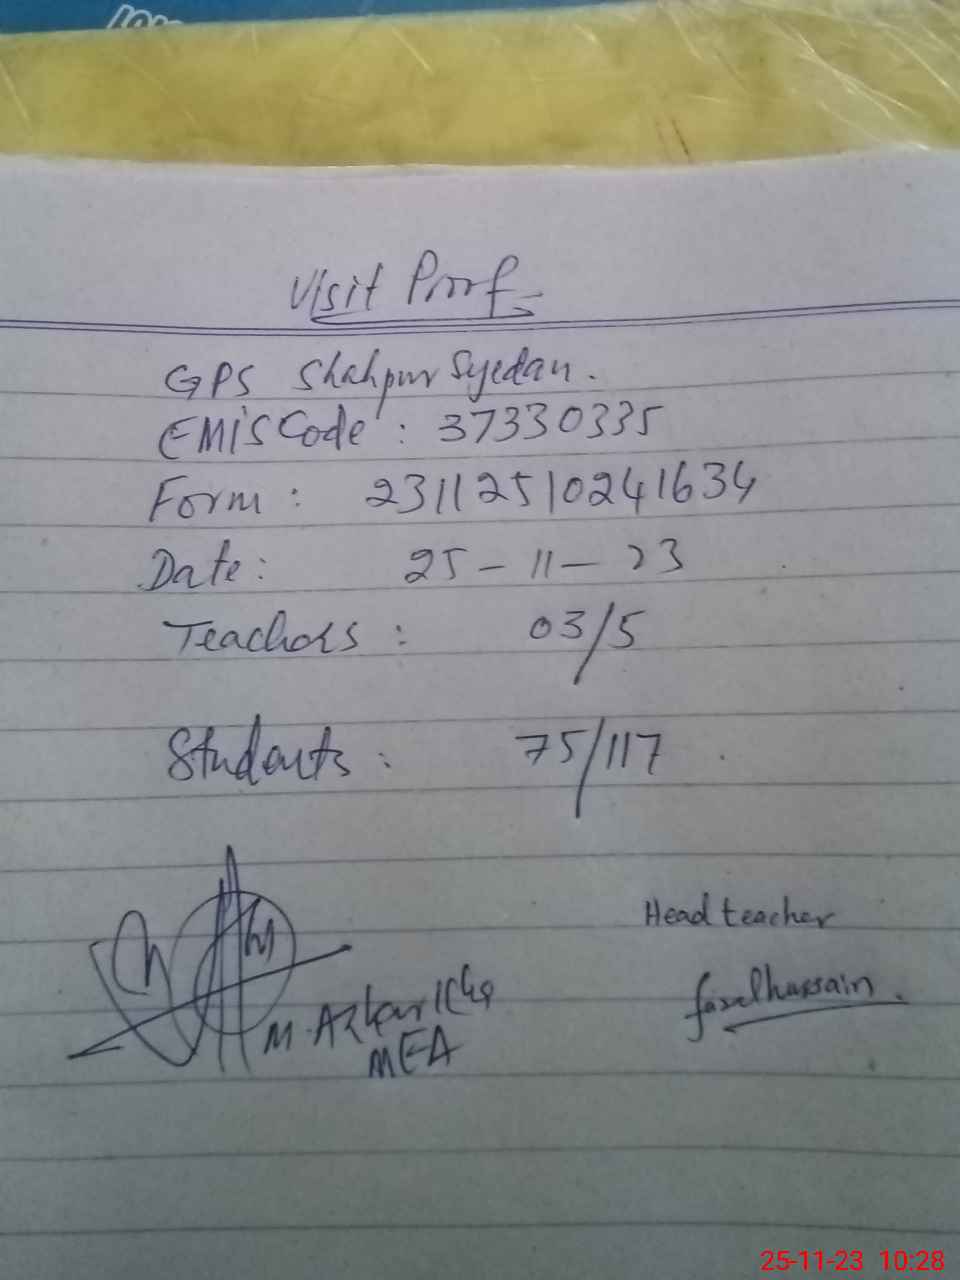 Visit Proof
GPS Shahpur Syedan.
EMIS Code : 37330335
Form : 23112510241634
Date : 25 - 11 - 23
Teachers : 03/5
Students : 75/117
Head teacher
M. Azhar
MEA
25-11-23 10:28